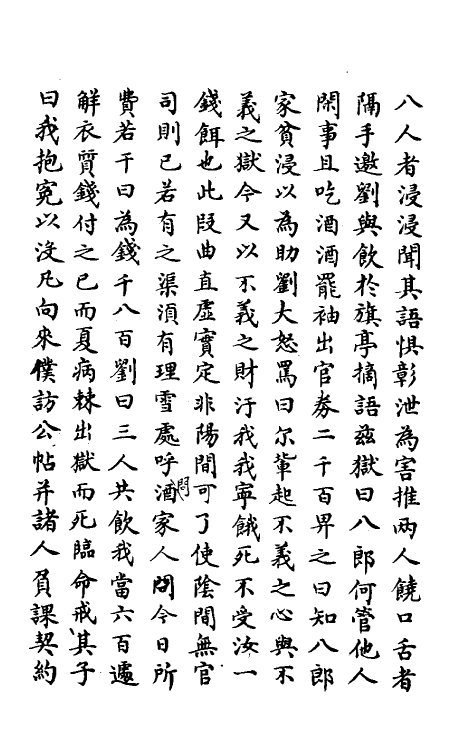 八人者浸浸聞其語惧彰泄為害推兩人饒口舌者
隔手邀劉與飲於旗亭摘語兹獄曰八郎何管他人
閑事且吃酒酒罷袖出官券二千百畀之曰知八郎
家貧浸以為助劉大怒罵曰尔軰起不義之心與不
義之獄今又以不義之財汙我我寧餓死不受汝一
錢餌也此段曲直虛實定非陽間可了使陰間無官
司則已若有之渠湏有理雪處呼酒家人問問今日所
費若干曰為錢千八百劉曰三人共飲我當六百遂
觧衣質錢付之已而夏病棘出獄而死臨命戒其子
曰我抱寃以沒凡向來僕訪公帖并諸人負課契約